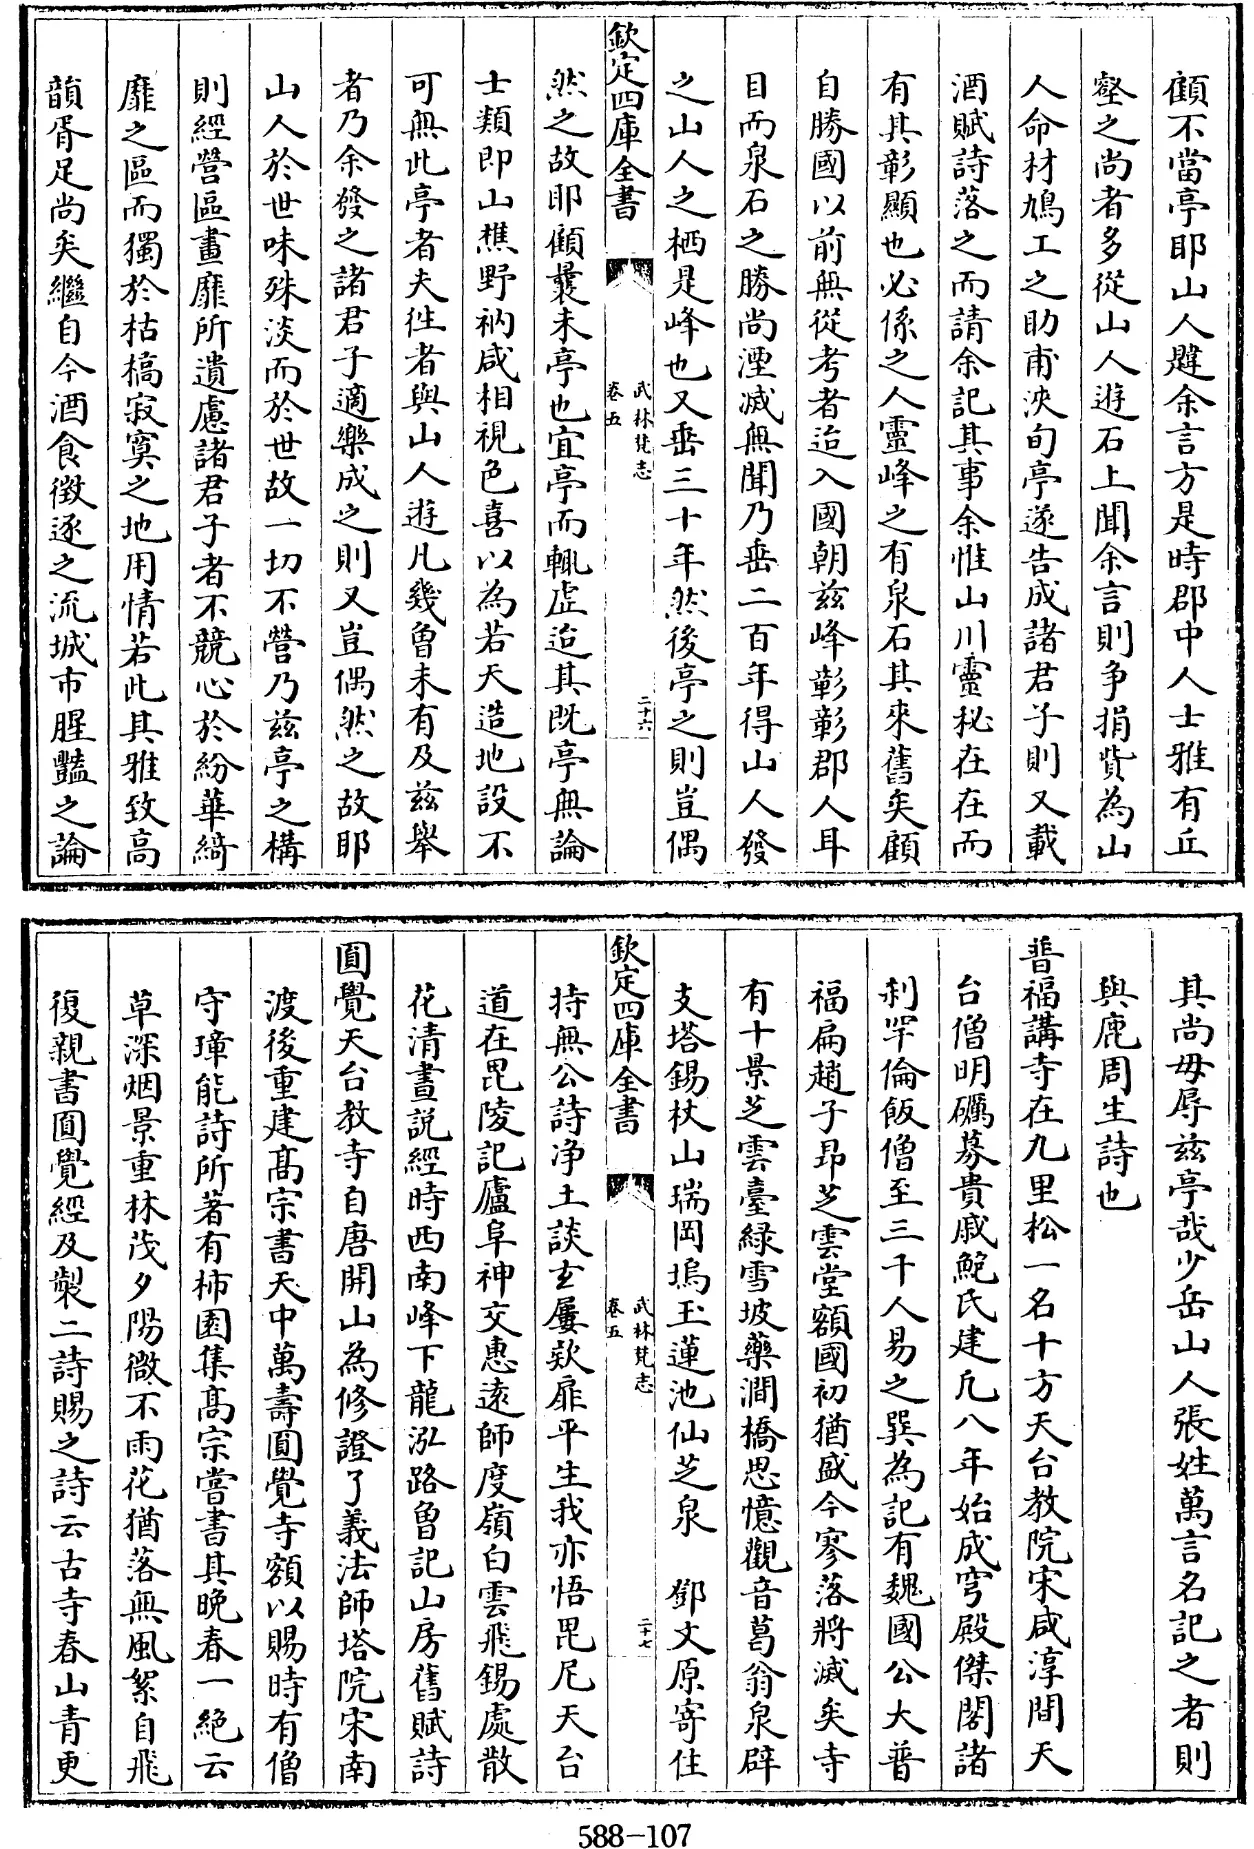 顧不當亭耶山人韙余言方是時郡中人士雅有丘
壑之尚者多從山人遊石上聞余言則争捐貲為山
人命材鳩工之助甫浹旬亭遂告成諸君子則又載
酒賦詩落之而請余記其事余惟山川靈秘在在而
有其彰顯也必係之人靈峰之有泉石其來舊矣顧
自勝國以前無從考者迨入國朝兹峰彰彰郡人耳
目而泉石之勝尚湮滅無聞乃垂二百年得山人發
之山人之栖是峰也又垂三十年然後亭之則豈偶
欽定四庫全書
武林梵志
卷五
二十六
然之故耶顧曩未亭也宜亭而輒虛迨其既亭無論
士類即山樵野衲咸相視色喜以為若天造地設不
可無此亭者夫徃者與山人遊凡幾曾未有及兹舉
者乃余發之諸君子適樂成之則又豈偶然之故耶
山人於世味殊淡而於世故一切不營乃兹亭之構
則經營區畫靡所遺慮諸君子者不競心於紛華綺
靡之區而獨於枯槁寂寞之地用情若此其雅致高
韻胥足尚矣繼自今酒食徵逐之流城市腥豔之論
其尚毋辱兹亭哉少岳山人張姓萬言名記之者則
與鹿周生詩也
普福講寺在九里松一名十方天台教院宋咸淳間天
台僧明礪募貴戚鮑氏建凡八年始成穹殿傑閣諸
刹罕倫飯僧至三千人易之巽為記有魏國公大普
福扁趙子昂芝雲堂額國初猶盛今寥落將滅矣寺
有十景芝雲臺緑雪坡藥澗橋思憶觀音葛翁泉辟
支塔錫杖山瑞岡塢玉蓮池仙芝泉 鄧文原寄住
欽定四庫全書
武林梵志
卷五
二十七
持無公詩浄土談玄屢欵扉平生我亦悟毘尼天台
道在毘陵記廬阜神交惠遠師度嶺白雲飛錫處散
花清晝説經時西南峰下龍泓路曾記山房舊賦詩
圓覺天台教寺自唐開山為修證了義法師塔院宋南
渡後重建高宗書天中萬壽圓覺寺額以賜時有僧
守璋能詩所著有柿園集高宗嘗書其晚春一絶云
草深烟景重林茂夕陽微不雨花猶落無風絮自飛
復親書圓覺經及製二詩賜之詩云古寺春山青更
588-107